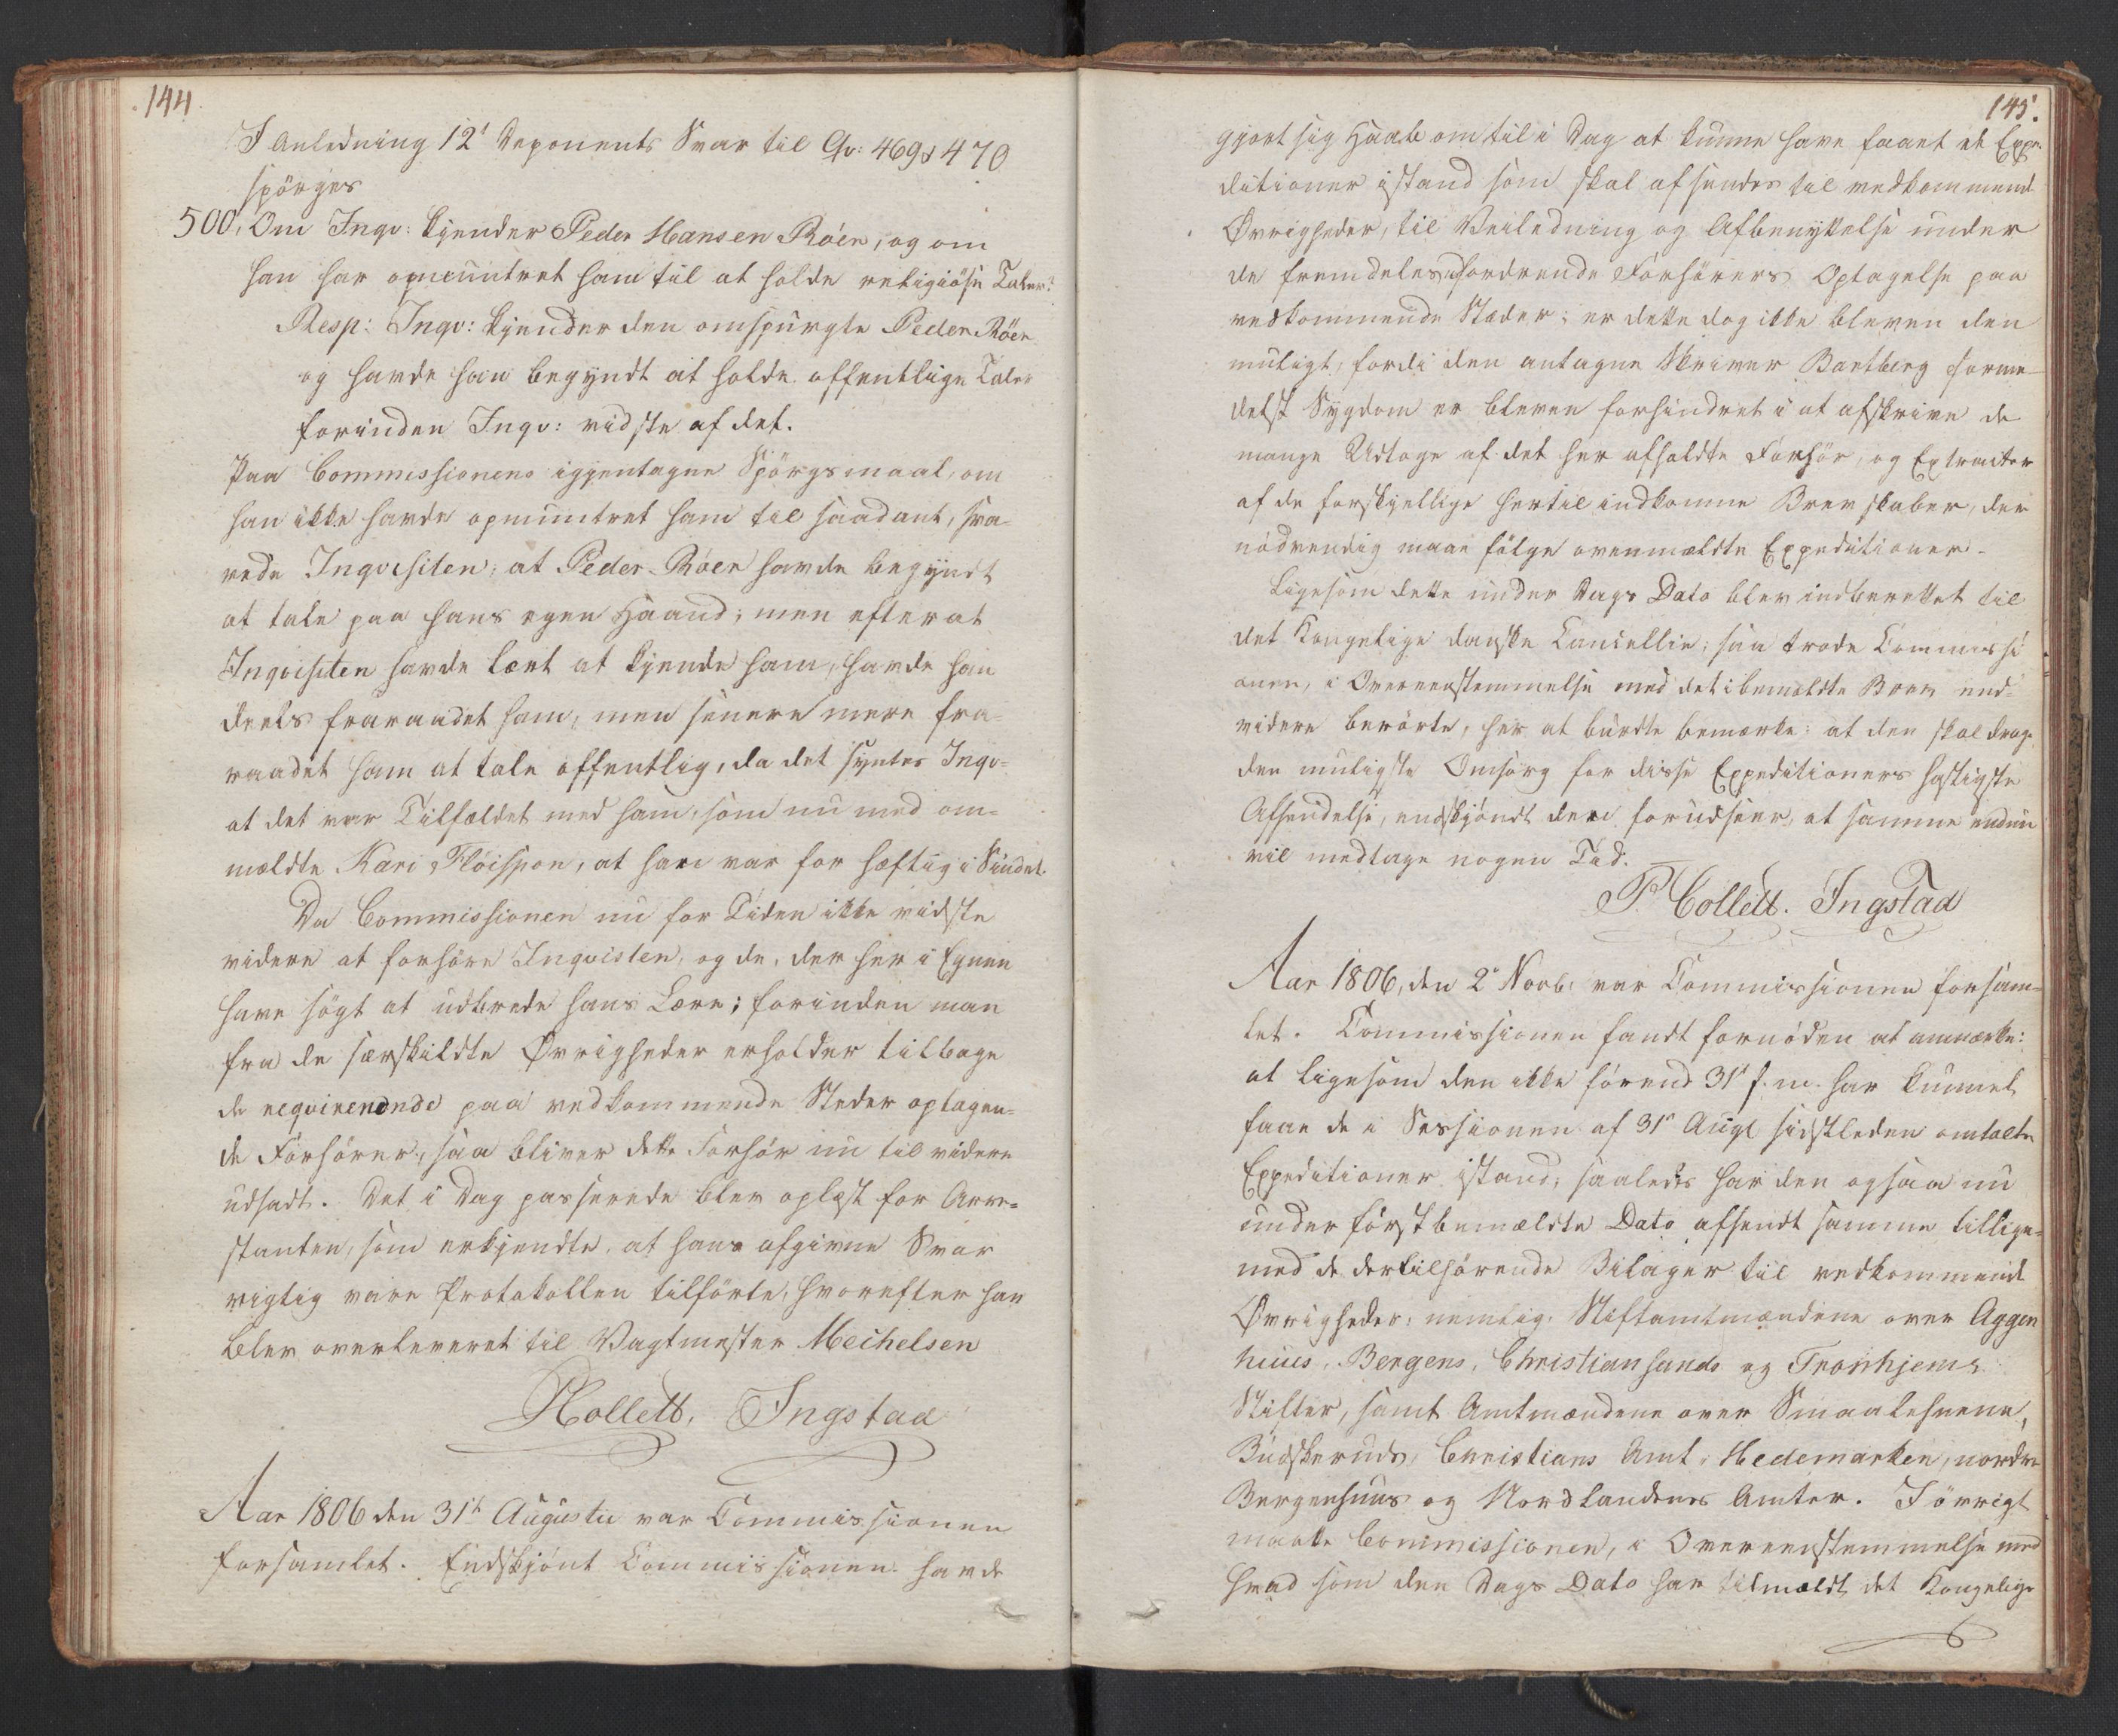 144.
I Anledning 12<sup>t</sup> Deponents Svar til Qv: 469 & 470
spörges
500, Om Inqv: kjender Peder Hansen Röen, og om
han har opmuntret ham til at holde religiöse Taler?
Resp: Inqv: kjender den omspurgte Peder Röen
og havde han begyndt at holde offentlige Taler
forinden Inqv: vidste af det.
Paa Commissionens igjentagne Spörgsmaal, om
han ikke havde opmuntret ham til saadant, sva-
rede Inqvisiten, at Peder Röen havde begyndt
at tale paa hans egen Haand; men efterat
Inqvisiten havde lært at kjende ham, havde han
deels fraraadet ham, men senere mere fra-
raadet ham at tale offentlig, da det syntes Inqv-
at det var Tilfældet med ham, som nu med om-
mældte Kari Flöispon, at han var for hæftig i Sindet.
Da Commissionen nu for Tiden ikke vidste
videre at forhöre Inqvisiten, og de, der her i Egnen
have sögt at udbrede hans Lære; forinden man
fra de særskildte Øvrigheder erholder tilbage
de reqvirerende paa vedkommende Steder optagen-
de Forhörer, saa bliver dette Forhör nu til videre
udsadt. Det i Dag passerede blev oplæst for Arre-
stanten, som erkjendte, at hans afgivne Svar
rigtig vare Protokollen tilförte, hvorefter han
blev overleveret til Vagtmester Meichelsen
PCollett. Ingstad
Aar 1806 den 31<sup>te</sup> Augustii var Commissionen
forsamlet. Endskjönt Commissionen havde
145.
gjort sig Haab om til i Dag at kunne have faaet de Expe-
ditioner istand som skal afsendes til vedkommende
Øvrigheder, til Veiledning og Afbenyttelse under
de fremdeles fordrende Forhörers Optagelse paa
vedkommende Stæder; er dette dog ikke bleven den
muligt, fordi den antagne Skriver Bartberg forme-
delst Sygdom er bleven forhindret i at afskrive de
mange Udtoge af det her afholdte Forhör, og Extracter
af de forskjellige hertil indkomne Brevskaber, der
nödvendig maae fölge ovenmældte Expeditioner.
Ligesom dette under Dags Dato blev indberettet til
det Kongelige danske Cancellie; saa troede Commissi
onen, i Overeenstemmelse med det i bemældte Brev end-
videre berörte, her at burdte bemærke: at den skal drage
den muligste Omsorg for disse Expeditioners hastigste
Afsendelse, endskjöndt den forudseer, at samme endnu
vil medtage nogen Tid.
P. Collett. Ingstad
Aar 1806, den 2<sup>e</sup> Novb: var Commissionen forsam-
let. Commissionen fandt fornöden at anmærke:
at ligesom den ikke förend 31<sup>t</sup> f. m. har kunnet
faae de i Sessionen af 31<sup>t</sup> Augt sidstleden omtalte
Expeditioner istand, saaledes har den ogsaa nu
under förstbemældte Dato afsendt samme tillige-
med de dertilhörende Bilager til vedkommende
Øvrigheder: nemlig: Stiftamtmændene over Aggers
huus, Bergens, Christiansands og Tronhjems
Stifter, samt Amtmændene over Smaalehnene,
Budskeruds, Christians Amt, Hedemarken, nordre
Bergenhuus og Nordlandenes Amter. I övrigt
maatte Commissionen, i Overeenstemmelse med
hvad som den Dags Dato har tilmældt det Kongelige